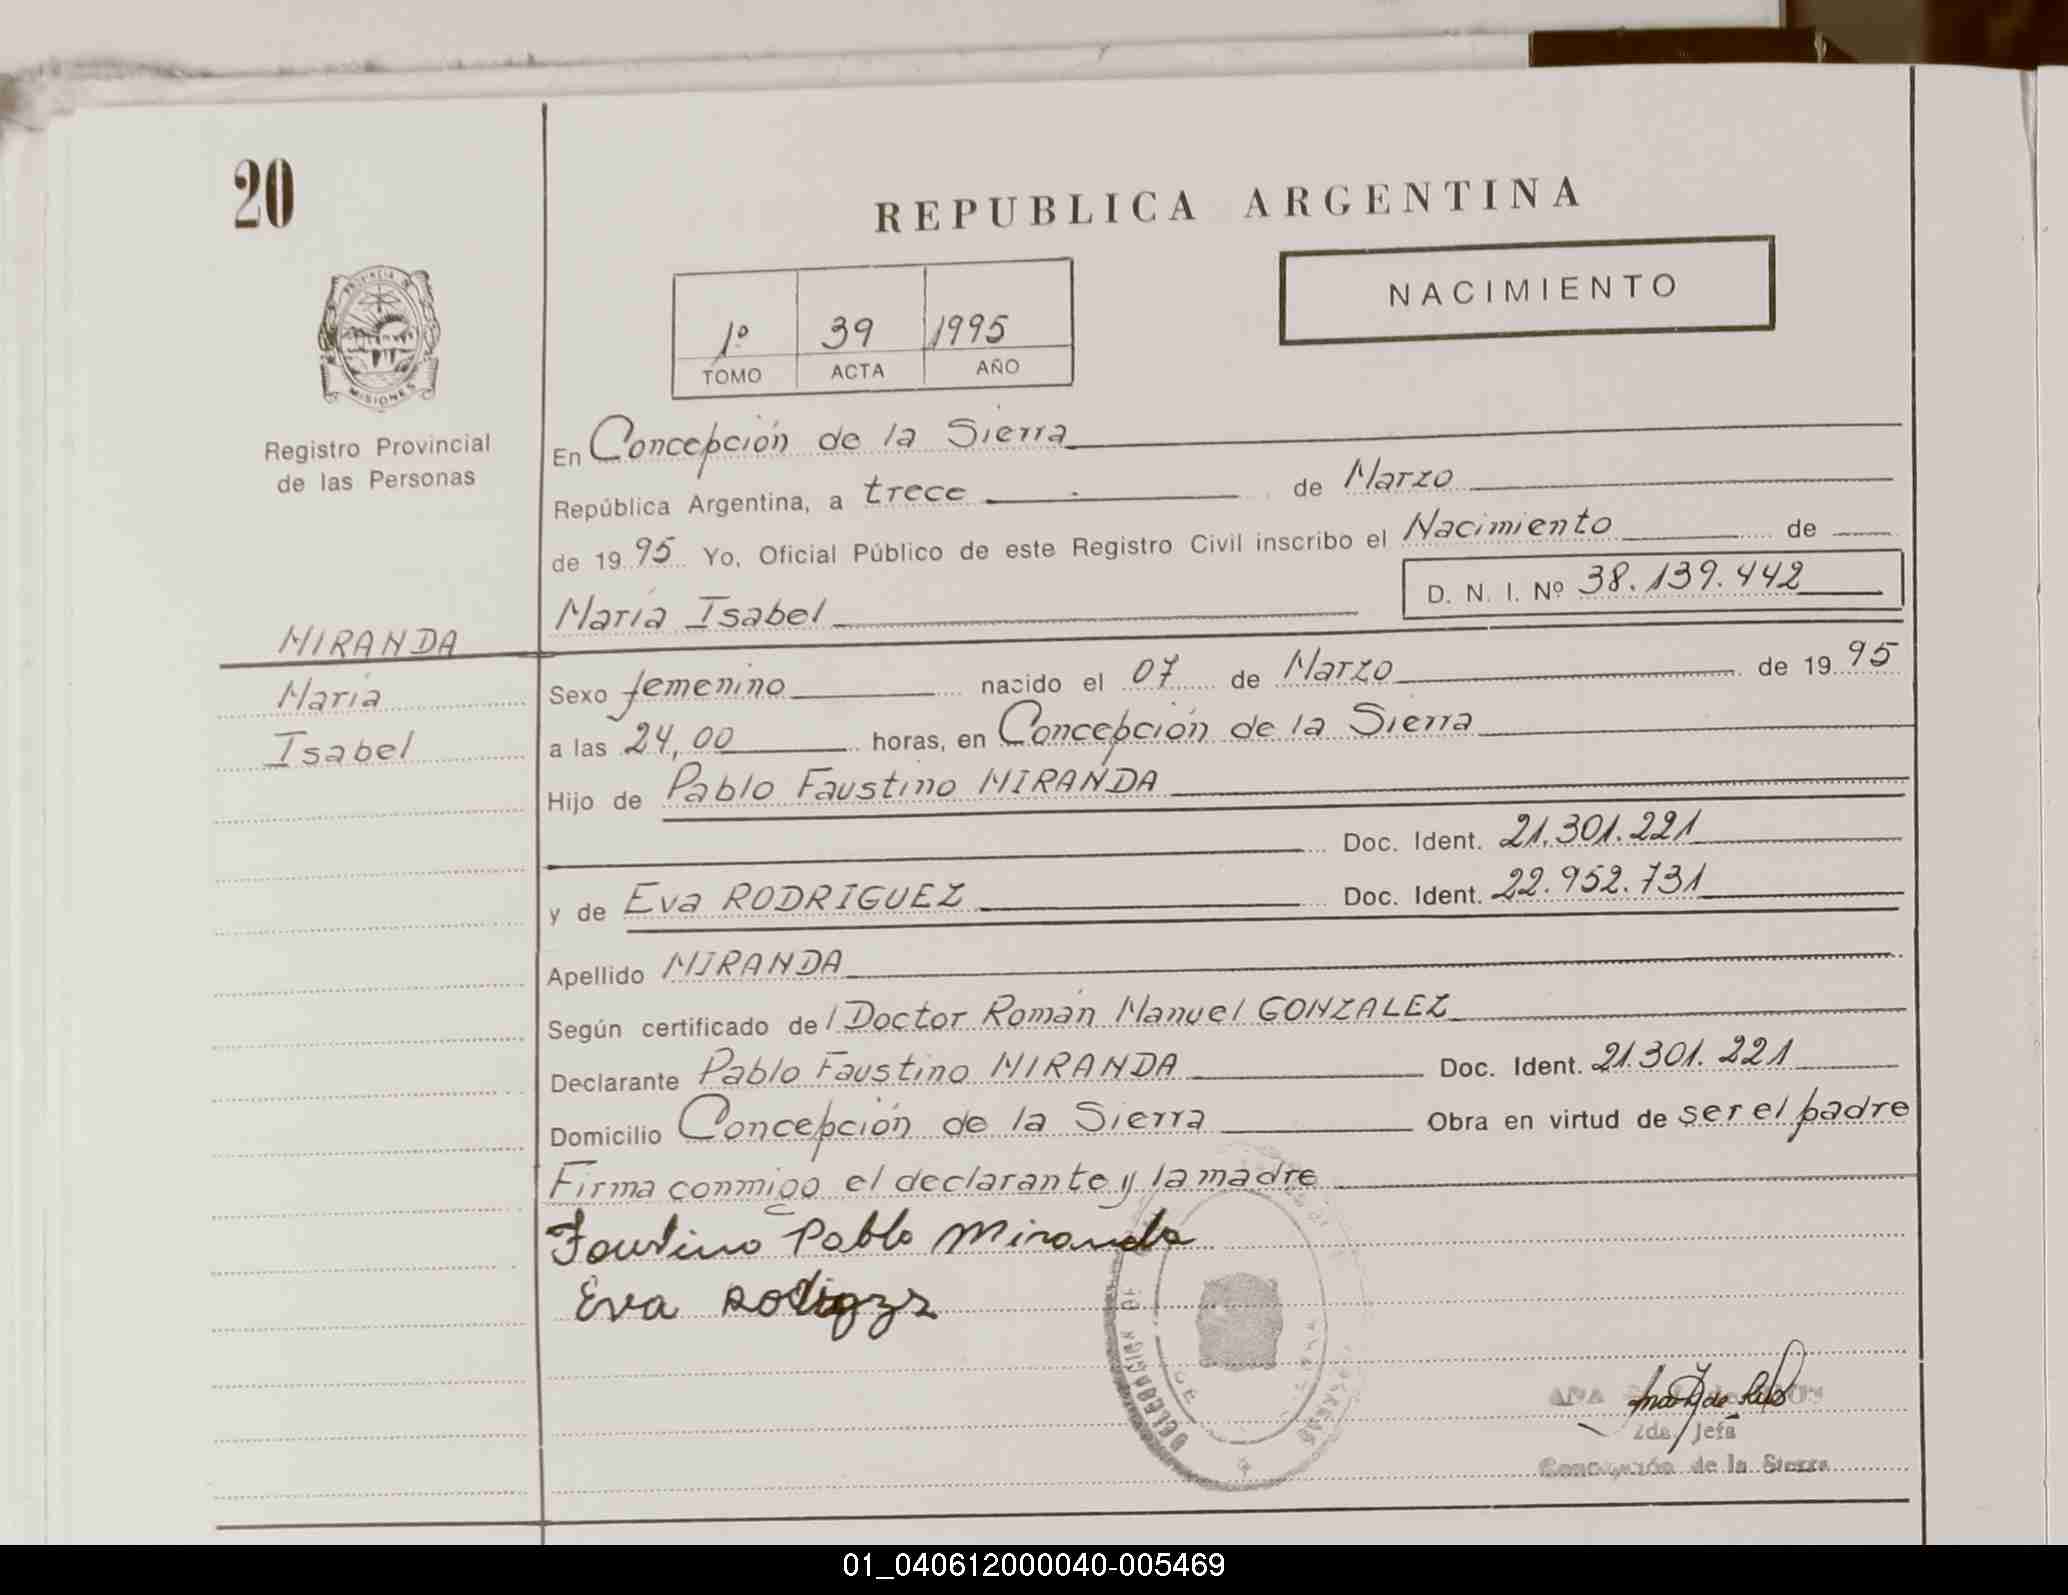 20
REPUBLICA ARGENTINA
PROVINCIA DE
MISIONES
NACIMIENTO
1º 39 1995
TOMO ACTA AÑO
Registro Provincial
de las Personas
En Concepción de la Sierra
República Argentina, a trece de Marzo
de 1995 Yo, Oficial Público de este Registro Civil inscribo el Nacimiento de
María Isabel D. N. I. Nº 38.139.442
MIRANDA
María
Isabel
Sexo femenino nacido el 07 de Marzo de 1995
a las 24,00 horas, en Concepción de la Sierra
Hijo de Pablo Faustino MIRANDA
Doc. Ident. 21.301.221
y de Eva RODRIGUEZ Doc. Ident. 22.952.731
Apellido MIRANDA
Según certificado del Doctor Román Manuel GONZALEZ
Declarante Pablo Faustino MIRANDA Doc. Ident. 21.301.221
Domicilio Concepción de la Sierra Obra en virtud de ser el padre
Firma conmigo el declarante y la madre
Faustino Pablo Miranda
Eva
DELEGACION
DE
ANA
2da. Jefa
Concepción de la Sierra
01_040612000040-005469